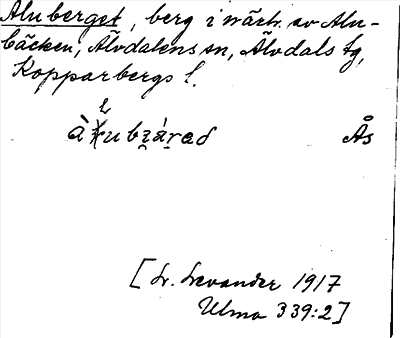 Aluberget, berg i närh. av Alu-
bäcken, Älvdalens sn, Älvdals tg,
Kopparbergs l.
àlubzárad Ås
[L. Levander 1917
Ulma 339:2]